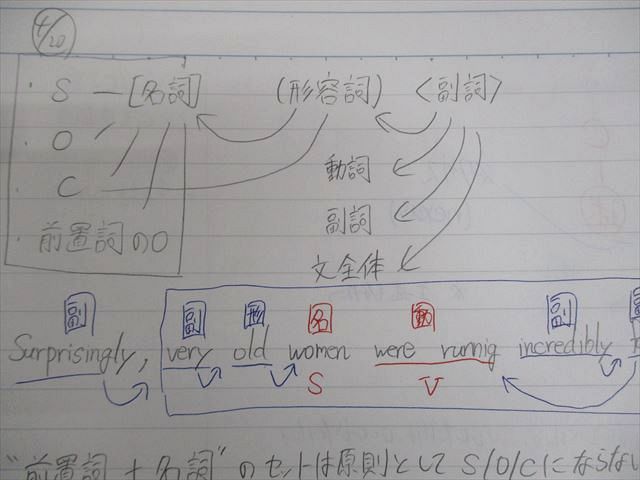 4/20
・ S ー [名詞] (形容詞) <副詞>
・ O
・ C 動詞
副詞
・ 前置詞のO
文全体
副 副 形 名 動 副
Surprisingly, very old women were runnig incredibly
S V
"前置詞 + 名詞" のセットは原則として S/O/Cにならない